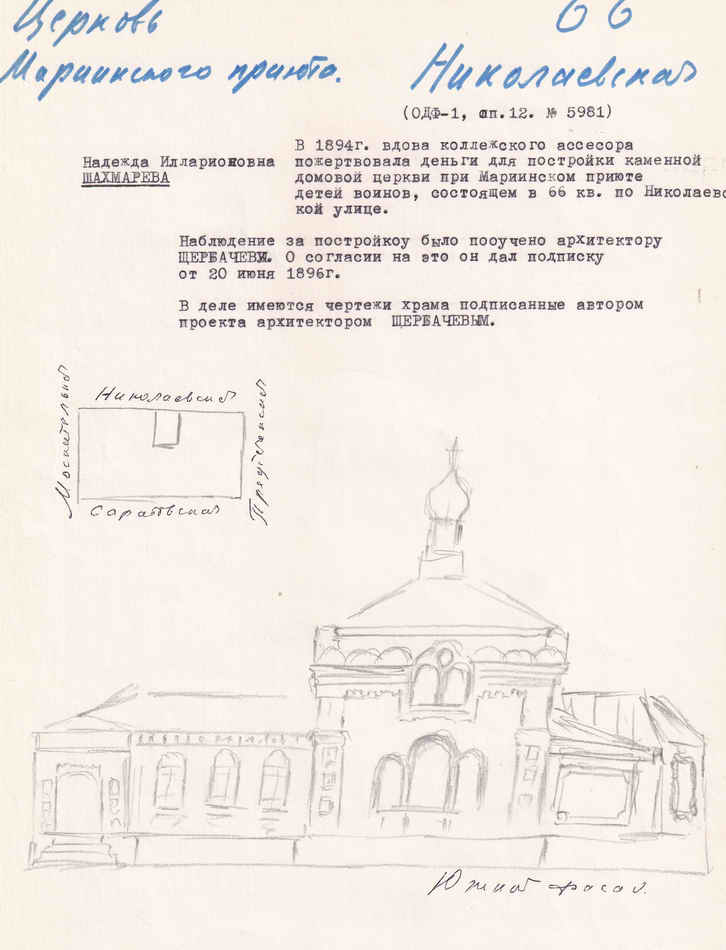 Церковь 66
Мариинского приюта. Николаевская
(ОДФ-1, оп.12. № 5981)
В 1894г. вдова коллежского ассесора
Надежда Илларионовна пожертвовала деньги для постройки каменной
ШАХМАРЕВА домовой церкви при Мариинском приюте
детей воинов, состоящем в 66 кв. по Николаевс
кой улице.
Наблюдение за постройкоу было пооучено архитектору
ЩЕРБАЧЕВУ. О согласии на это он дал подписку
от 20 июня 1896г.
В деле имеются чертежи храма подписанные автором
проекта архитектором ЩЕРБАЧЕВЫМ.
Николаевская
Москательная
Саратовская
Южный фасад.